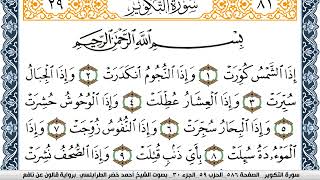 ٢٩ سُورَةُ التَّكْوِيرِ ٨١
بِسْمِ اللَّهِ الرَّحْمَٰنِ الرَّحِيمِ
إِذَا الشَّمْسُ كُوِّرَتْ ١ وَإِذَا النُّجُومُ انكَدَرَتْ ٢ وَإِذَا الْجِبَالُ
سُيِّرَتْ ٣ وَإِذَا الْعِشَارُ عُطِّلَتْ ٤ وَإِذَا الْوُحُوشُ حُشِرَتْ
٥ وَإِذَا الْبِحَارُ سُجِّرَتْ ٦ وَإِذَا النُّفُوسُ زُوِّجَتْ ٧ وَإِذَا
الْمَوْءُودَةُ سُئِلَتْ ٨ بِأَيِّ ذَنۢبٍ قُتِلَتْ ٩ وَإِذَا الصُّحُفُ نُشِرَتْ
سورة التكوير - الصفحة ٥٨٦ - الحزب ٥٩ - الجزء ٣٠ - بصوت الشيخ أحمد خضر الطرابلسي - برواية قالون عن نافع